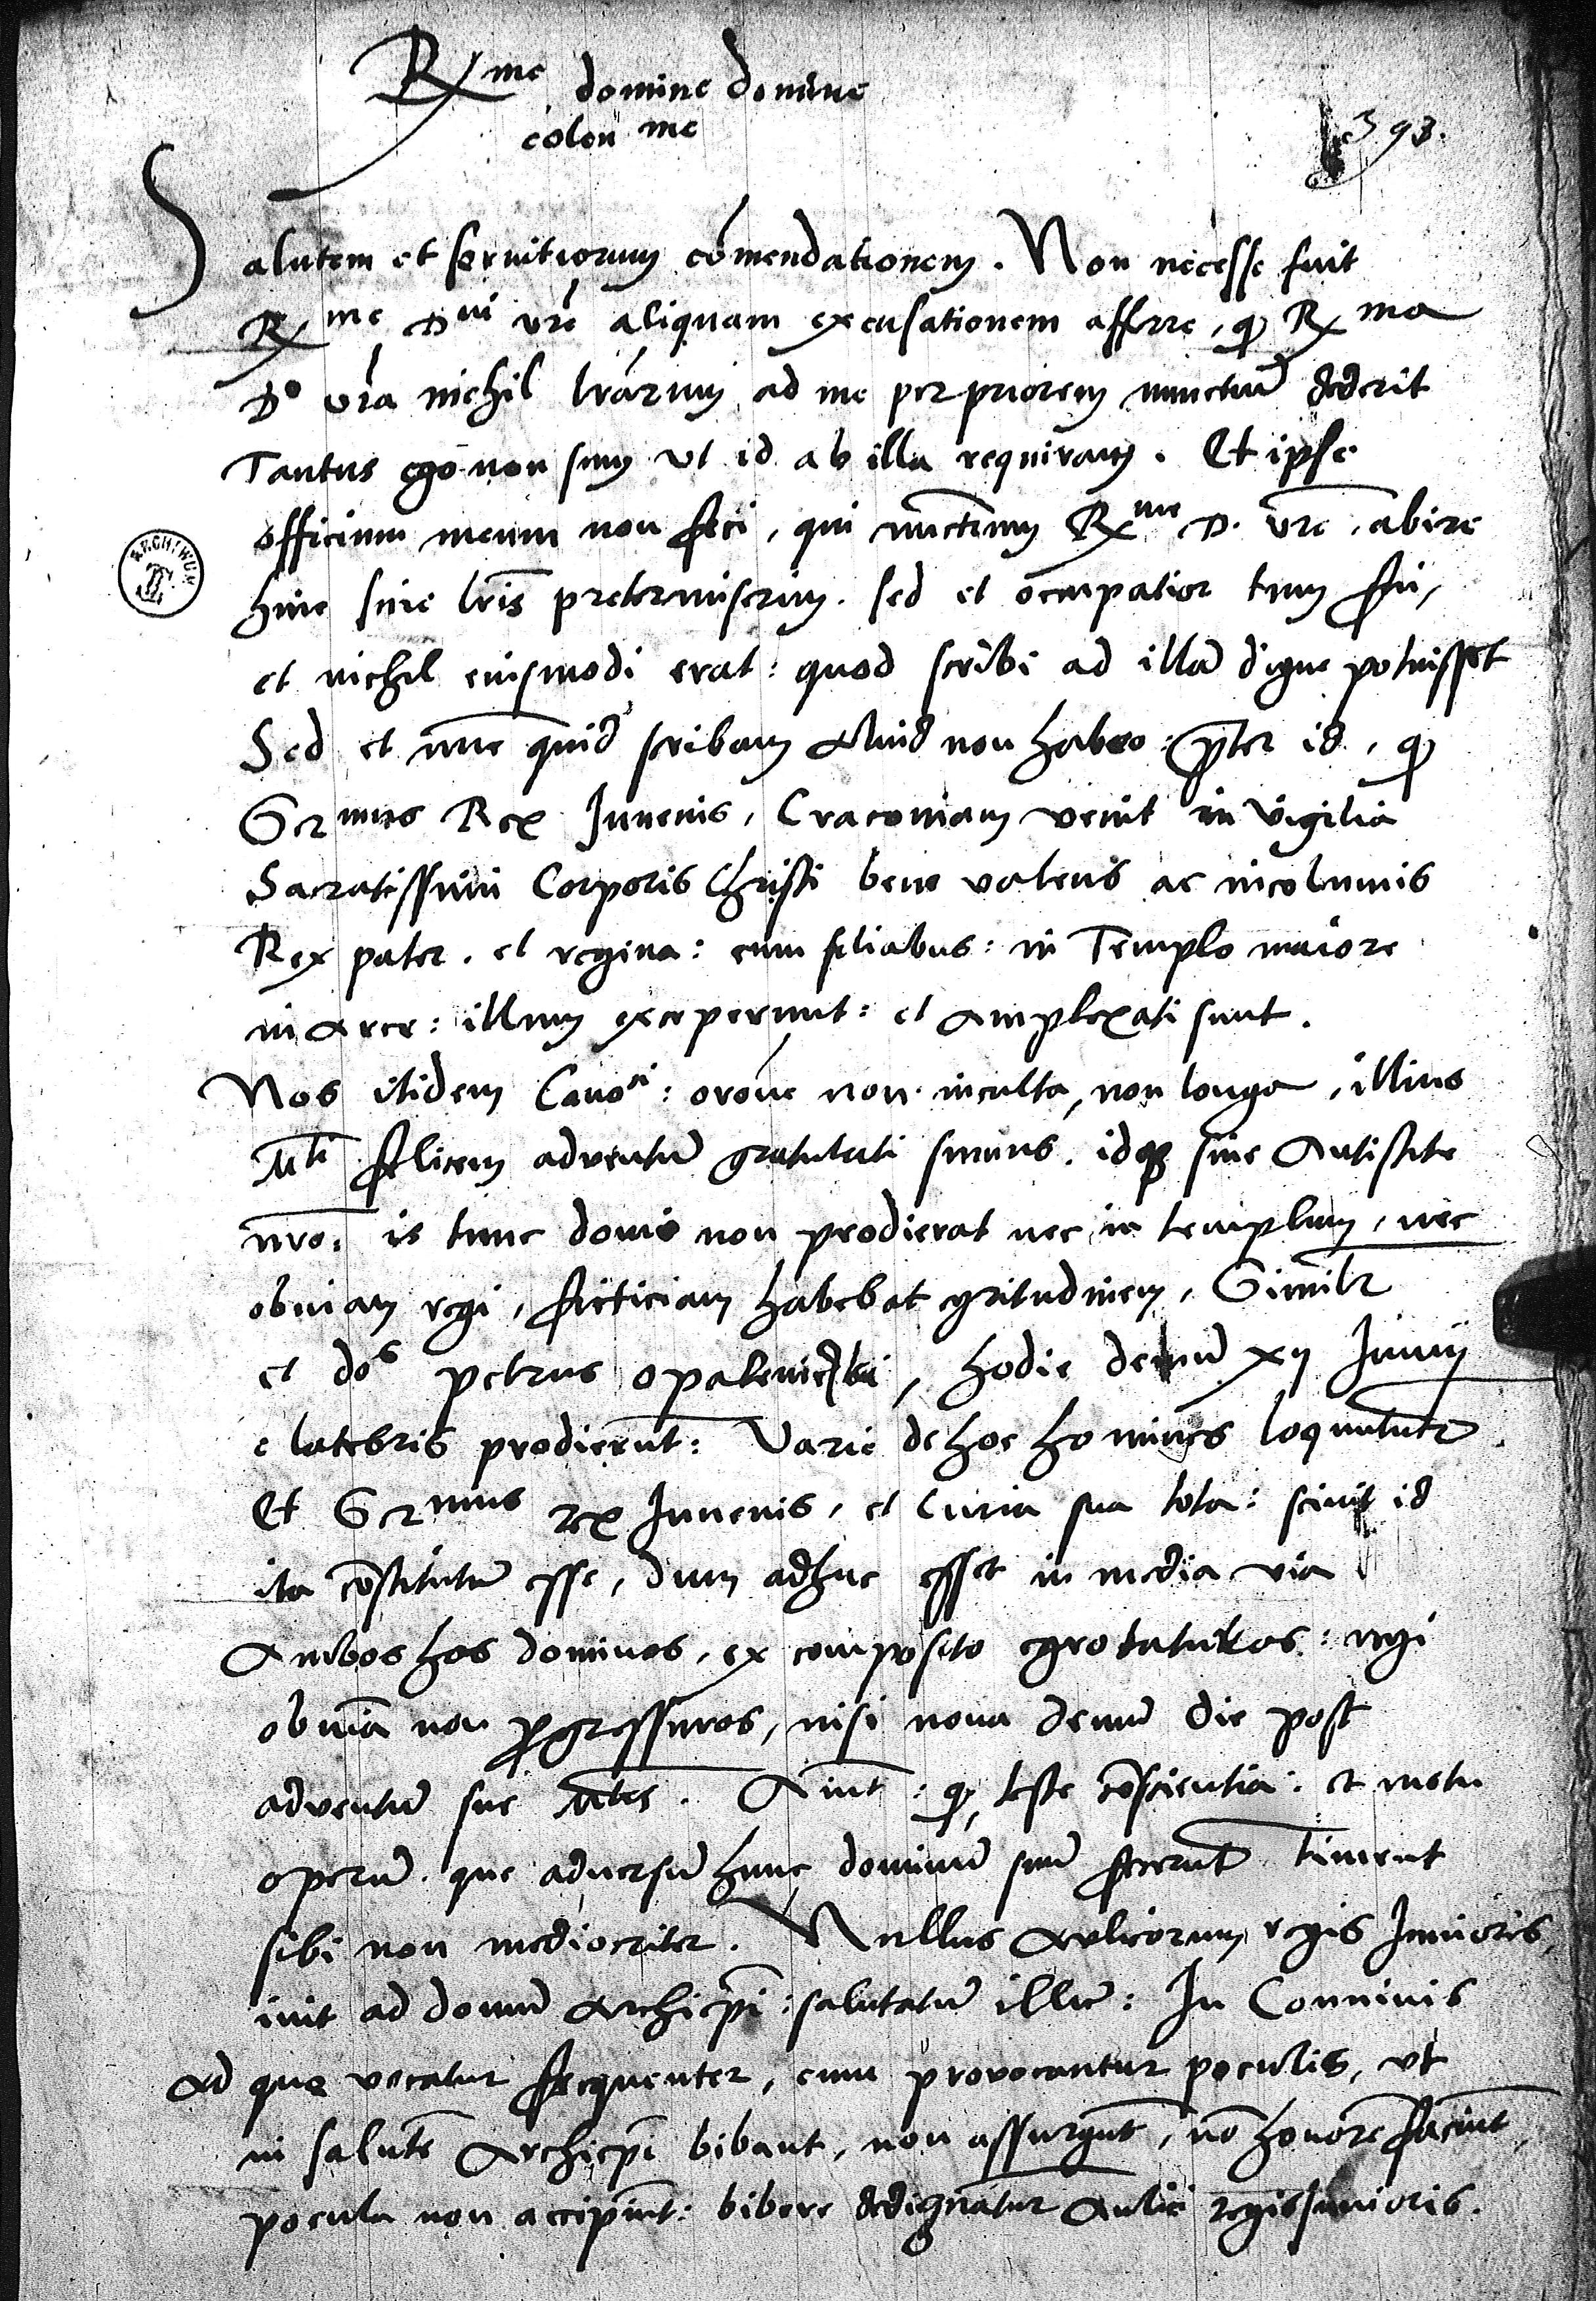 Rx me domine domine
colen me
393.
Salutem et servitiorum cōmendationem. Non necesse fuit
Rx me Dni vrē aliquam excusationem afferre, q Rx ma
Do vrā nichil lrārum ad me per priorem nunctiū dederit
Tantus ego non sum vt id ab illa requiram. Et ipse
officium meum non feci, qui nūctium Rx me D. vrē, abire
hinc sine lris pretermiserim. sed et occupatior tum fui,
et nichil eiusmodi erat: quod scribi ad illā digne potuisset
Sed et nūc quid scribam aliud non habeo: p̄ter id, q
Ser mus Rex Juvenis, Cracoviam venit in vigilia
Sacratissimi Corporis Christi bene valens ac incolumis
Rex pater. et regina: cum filiabus: in Templo maiore
in arce: illum exceperunt: et amplexati sunt.
Nos itidem Canoci: orōne non inculta, non longa, illius
Mti felicem adventū gratulati sumus. idq sine Antistite
nro: is tunc domo non prodierat nec in templum, nec
obviam regi, ficticiam habebat egritudinem, Similr
et dos petrus opalenicski, hodie demū xij Junij
e latebris prodierūt: Varie de hoc homines loquūtur
Et Ser mus rex Juvenis, et curia sua tota: scivit id
ita cōstitutū esse, dum adhuc esset in media via
Ambos hos dominos, ex composito egrotaturos: regi
obviā non progressuros, nisi nona demū die post
adventū sue Mtis. Aiūt: q, teste cōscientia: et metu
operū. que adversū hunc dominū suū fecerūt timent
sibi non mediocriter. Nullus aulicorum regis Junioris,
ivit ad domū Archiepī: salutatū illū: In Conviviis
ad que vocatur frequenter, cum provocantur poculis, vt
in salutē Archiepi bibant, non assurgūt, nō honorē faciūt,
pocula non accipiūt: bibere dedignātur Aulici regis Junioris.
ARCHIWUM